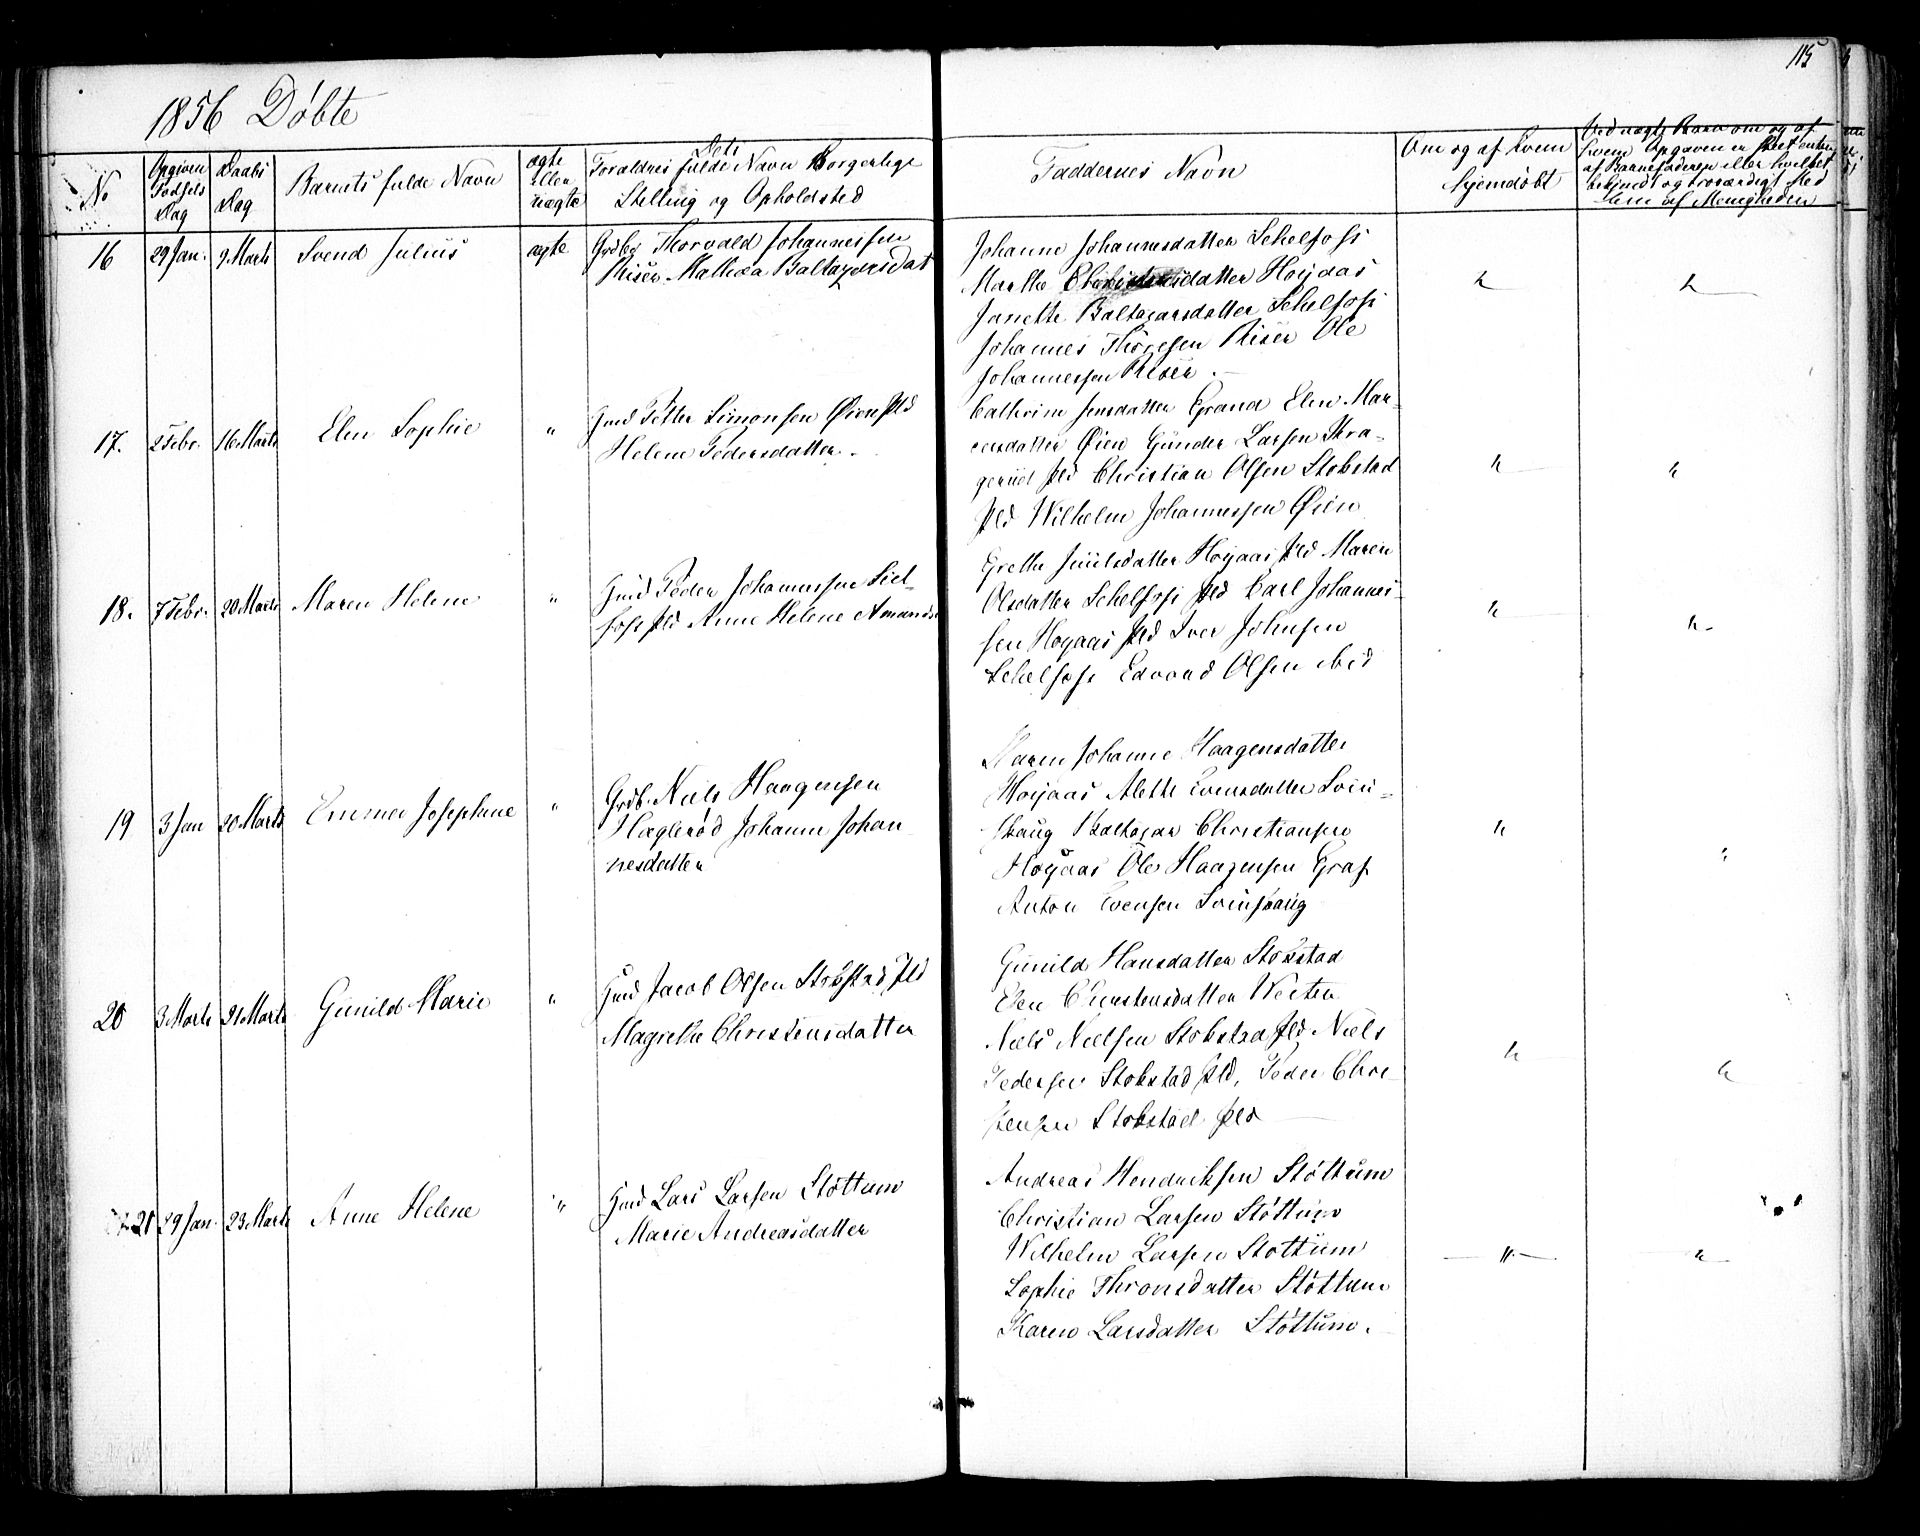 115
1856 Døbte
No
Opgiven Fødsels Dag
Daabs Dag
Barnets fulde Navn
ægte eller uægte
Forældres fulde Navn Borgerlige
Stilling og Opholdsted
Faddernes Navn
Om og af hvem
hjemdøbt
Ved uægte Børn om og af
hvem Opgaven er skeet enten
af Barnefaderen eller hvilket
bekjendt og troværdigt Med
lem af Menigheden
16 29 Jan. 9 Marts Svend Julius ægte
Grdbr Thorvald Johannessen
Riser Mathea Baltazarsdat
Johanne Johannesdatter Schelfoss
Marthe Christensdatter Høyaas
Janette Baltazarsdatter Schelfoss
Johannes Thoresen Riser Ole
Johannessen Riser.
17. 2 Febr. 16 Marts Elen Sophie "
Hmd Petter Simonsen Øien Pld
Helene Pedersdatter.
Cathrine Jensdatter Grand Elen Mar-
Øien Gunder Larsen Kra-
gerud Pld Christian Olsen Stokstad
Pld Wilhelm Johannessen Øien
18. 7 Febr. 20 Marts Maren Helene "
Hmd Peder Johannessen Siel-
foss Pld Anne Helene Amunds.
Grethe Juulsdatter Høyaas Pld Maren
Olsdatter Schelfoss Pld Carl Johannes-
sen Høyaas Pld Iver Johnsen
Schelfoss Edvard Olsen ibid
19 3 Jan 20 Marts Emma Josephine "
Grdb. Niels Haagensen
Haglerød Johanne Johan
nesdatter
Maren Johanne Haagensdatter
Høyaas Alette Evensdatter Svin-
skaug Baltazar Christiansen
Høyaas Ole Haagensen Graf
Anton Evensen Svinskaug
20 3 Marts 21 Marts Gunild Marie "
Hmd Jacob Olsen Stokstad Pld
Magrethe Christensdatter
Gunild Hansdatter Stokstad
Elen Christensdatter
Niels Nielsen Stokstad Pld Niels
Pedersen Stokstad Pld, Peder Chri-
stensen Stokstad Pld
21 29 Jan. 23 Marts Anne Helene "
Hmd Lars Larsen Støttum
Marie Andreasdatter
Andreas Hendriksen Støttum
Christian Larsen Støttum
Wilhelm Larsen Støttum
Sophie Thronsdatter Støttum
Karen Larsdatter Støttum.